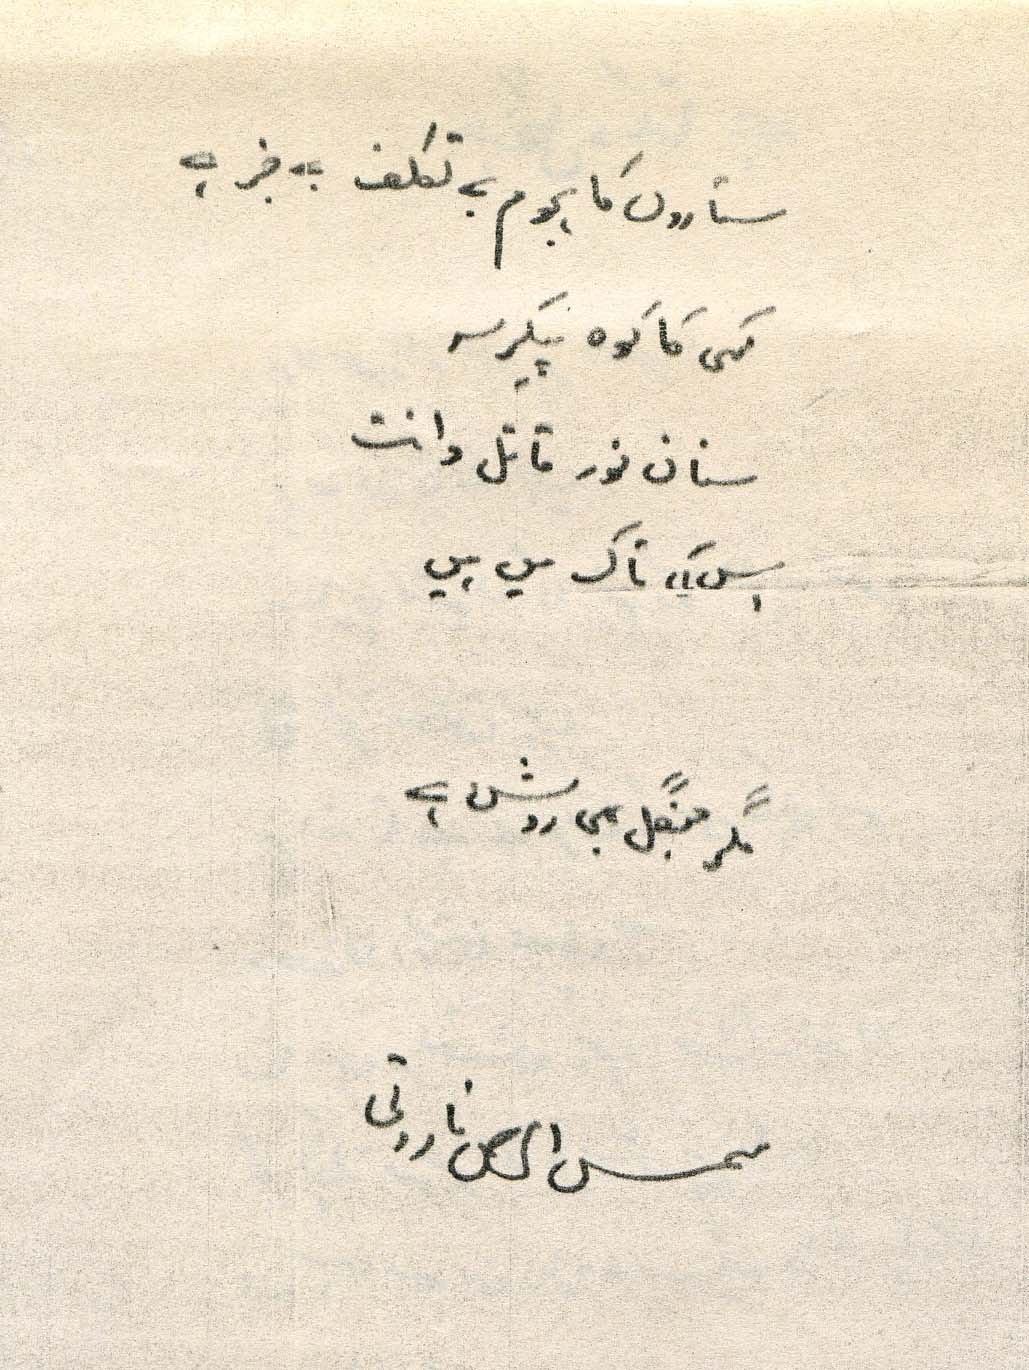 ستاروں کا ہجوم بے تکلف بے خبر ہے
کسی کا کوہ پیکر سے
سنان نور قاتل دانت
اس کی تاک میں ہیں
مگر جنگل بھی روشن ہے
شمس الرحمن فاروقی